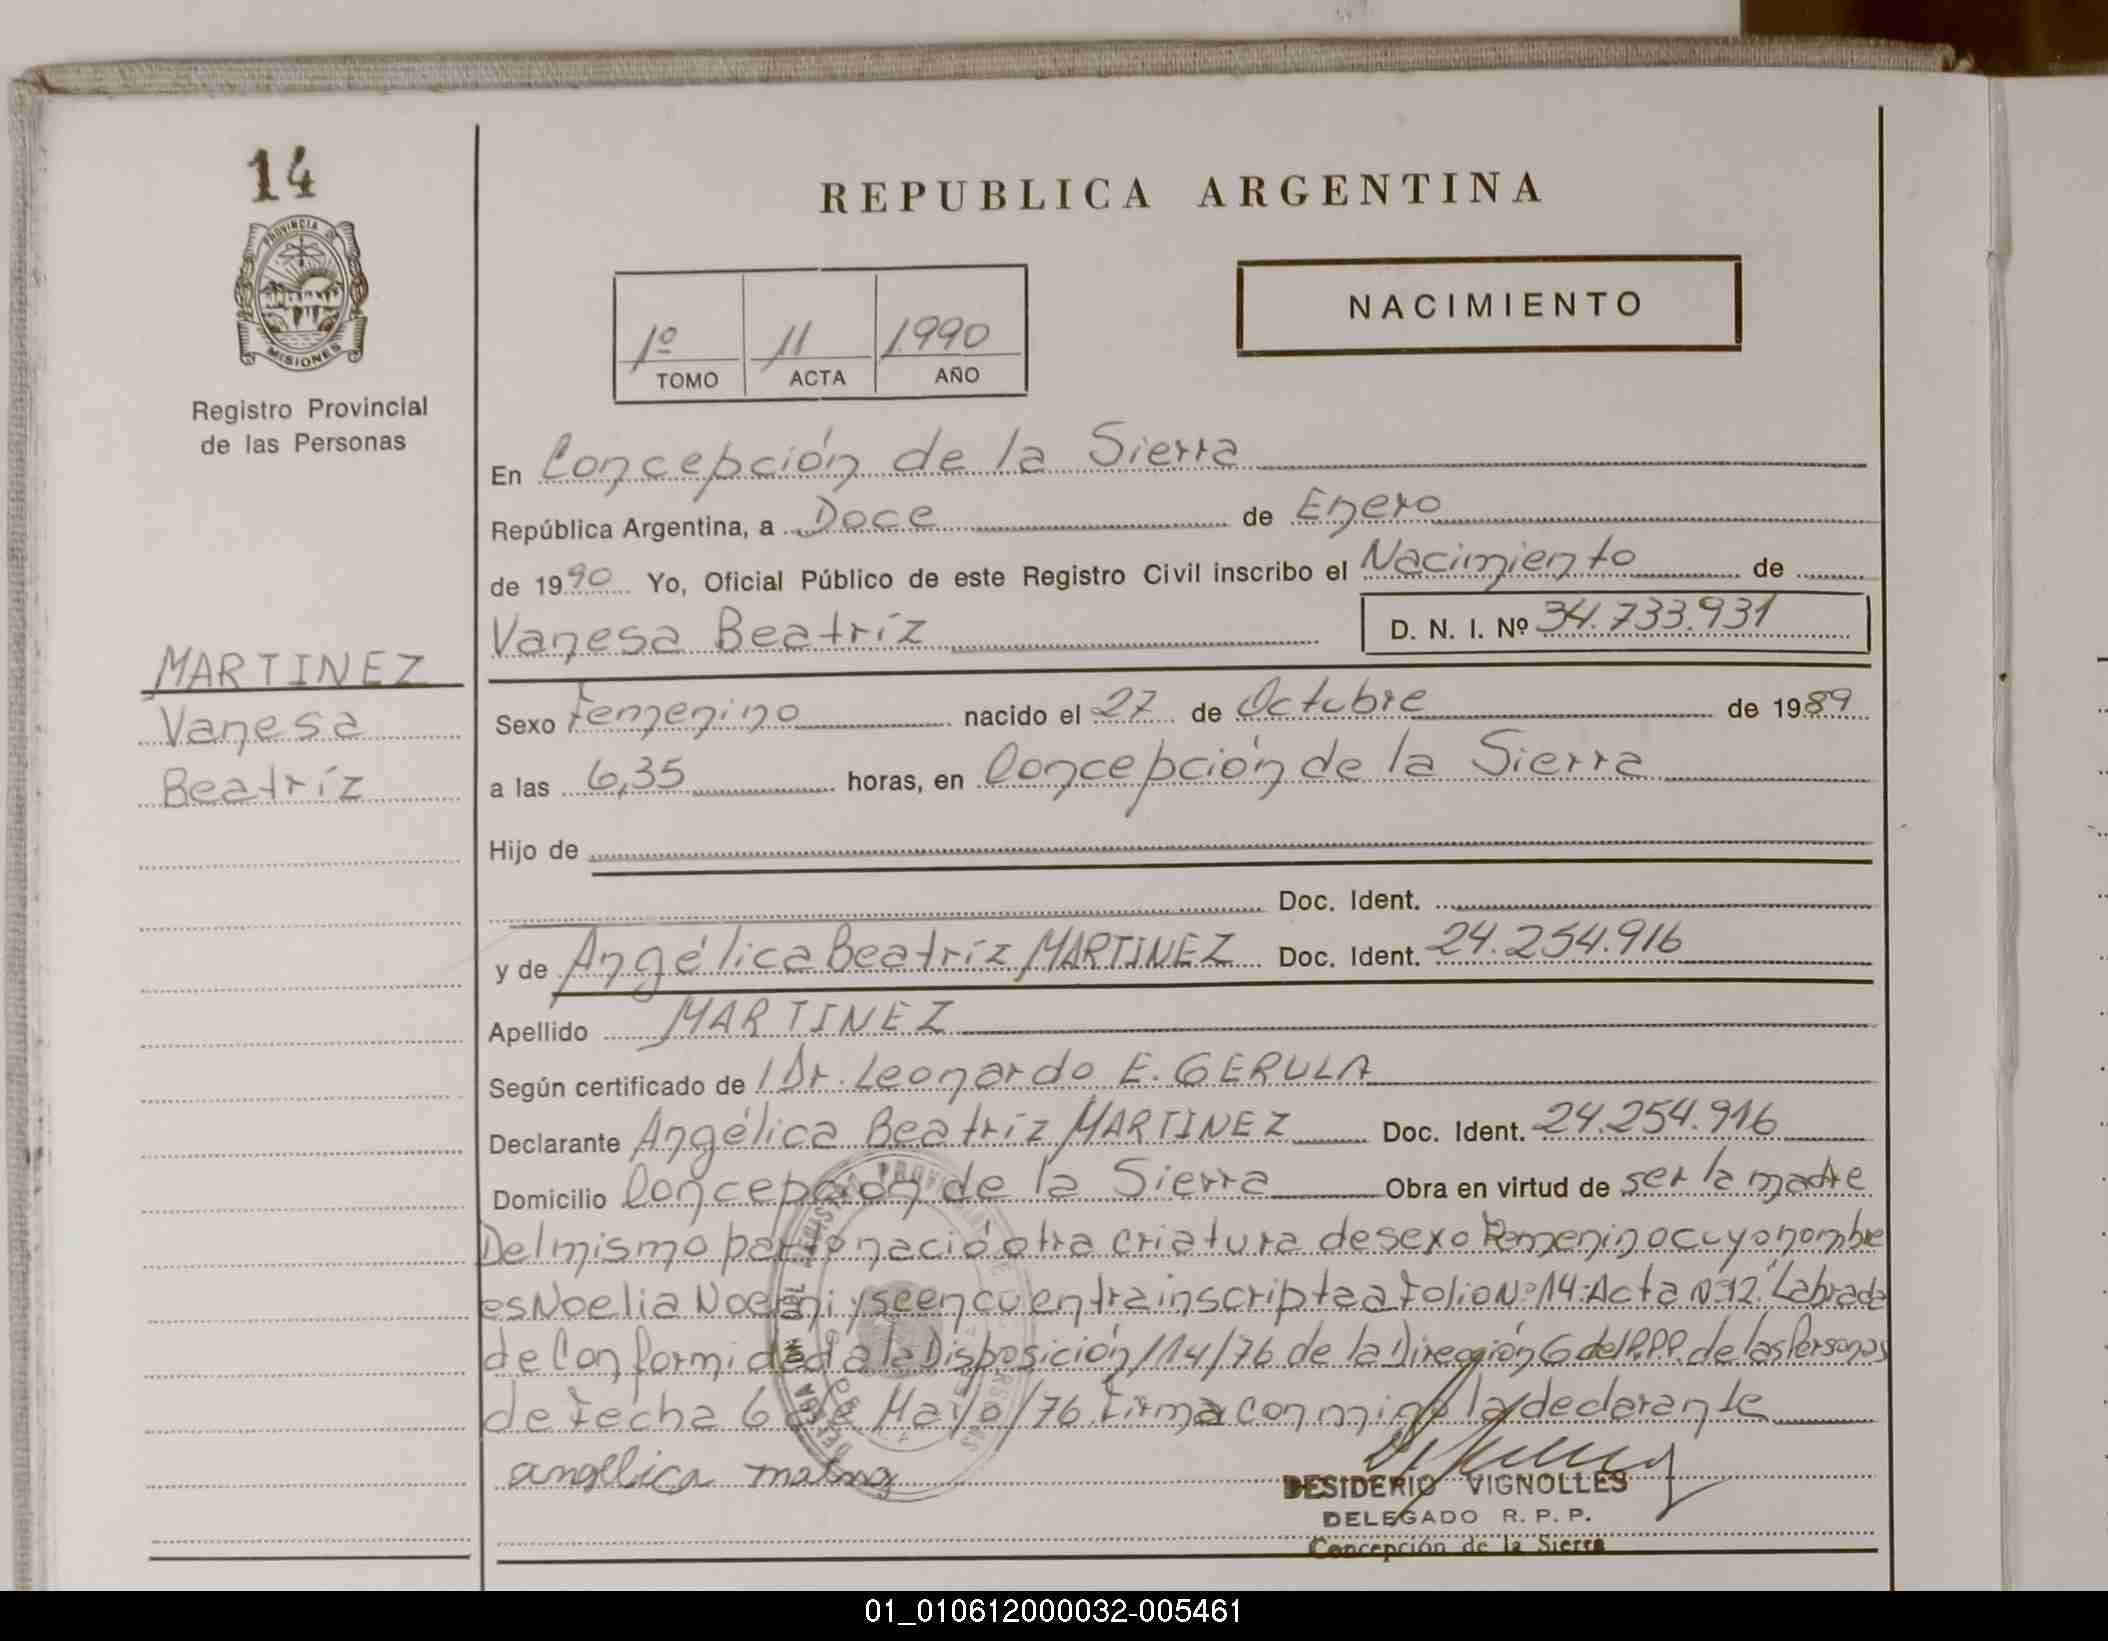 14
PROVINCIA DE
MISIONES
Registro Provincial
de las Personas
MARTINEZ
Vanesa
Beatríz
REPUBLICA ARGENTINA
1º 11 1990
TOMO ACTA AÑO
NACIMIENTO
En Concepción de la Sierra
República Argentina, a Doce de Enero
de 1990 Yo, Oficial Público de este Registro Civil inscribo el Nacimiento de
Vanesa Beatríz D. N. I. Nº 34.733.931
Sexo Femenino nacido el 27 de Octubre de 1989
a las 6,35 horas, en Concepción de la Sierra
Hijo de
Doc. Ident.
y de Angélica Beatríz MARTINEZ Doc. Ident. 24.254.916
Apellido MARTINEZ
Según certificado de Dr. Leonardo E. GERULA
Declarante Angélica Beatríz MARTINEZ Doc. Ident. 24.254.916
Domicilio Concepción de la Sierra Obra en virtud de ser la madre
Del mismo parto nació otra criatura de sexo Femenino cuyo nombre
es Noelia Noemi y se encuentra inscripta a Folio Nº 14-Acta Nº 12. Labrada
de Conformidad a la Disposición 114/76 de la Dirección G del R.P.P. de las Personas
de Fecha 6 de Mayo/76. Firma conmigo la declarante
angelica
DESIDERIO VIGNOLLES
DELEGADO R. P. P.
Concepción de la Sierra
01_010612000032-005461